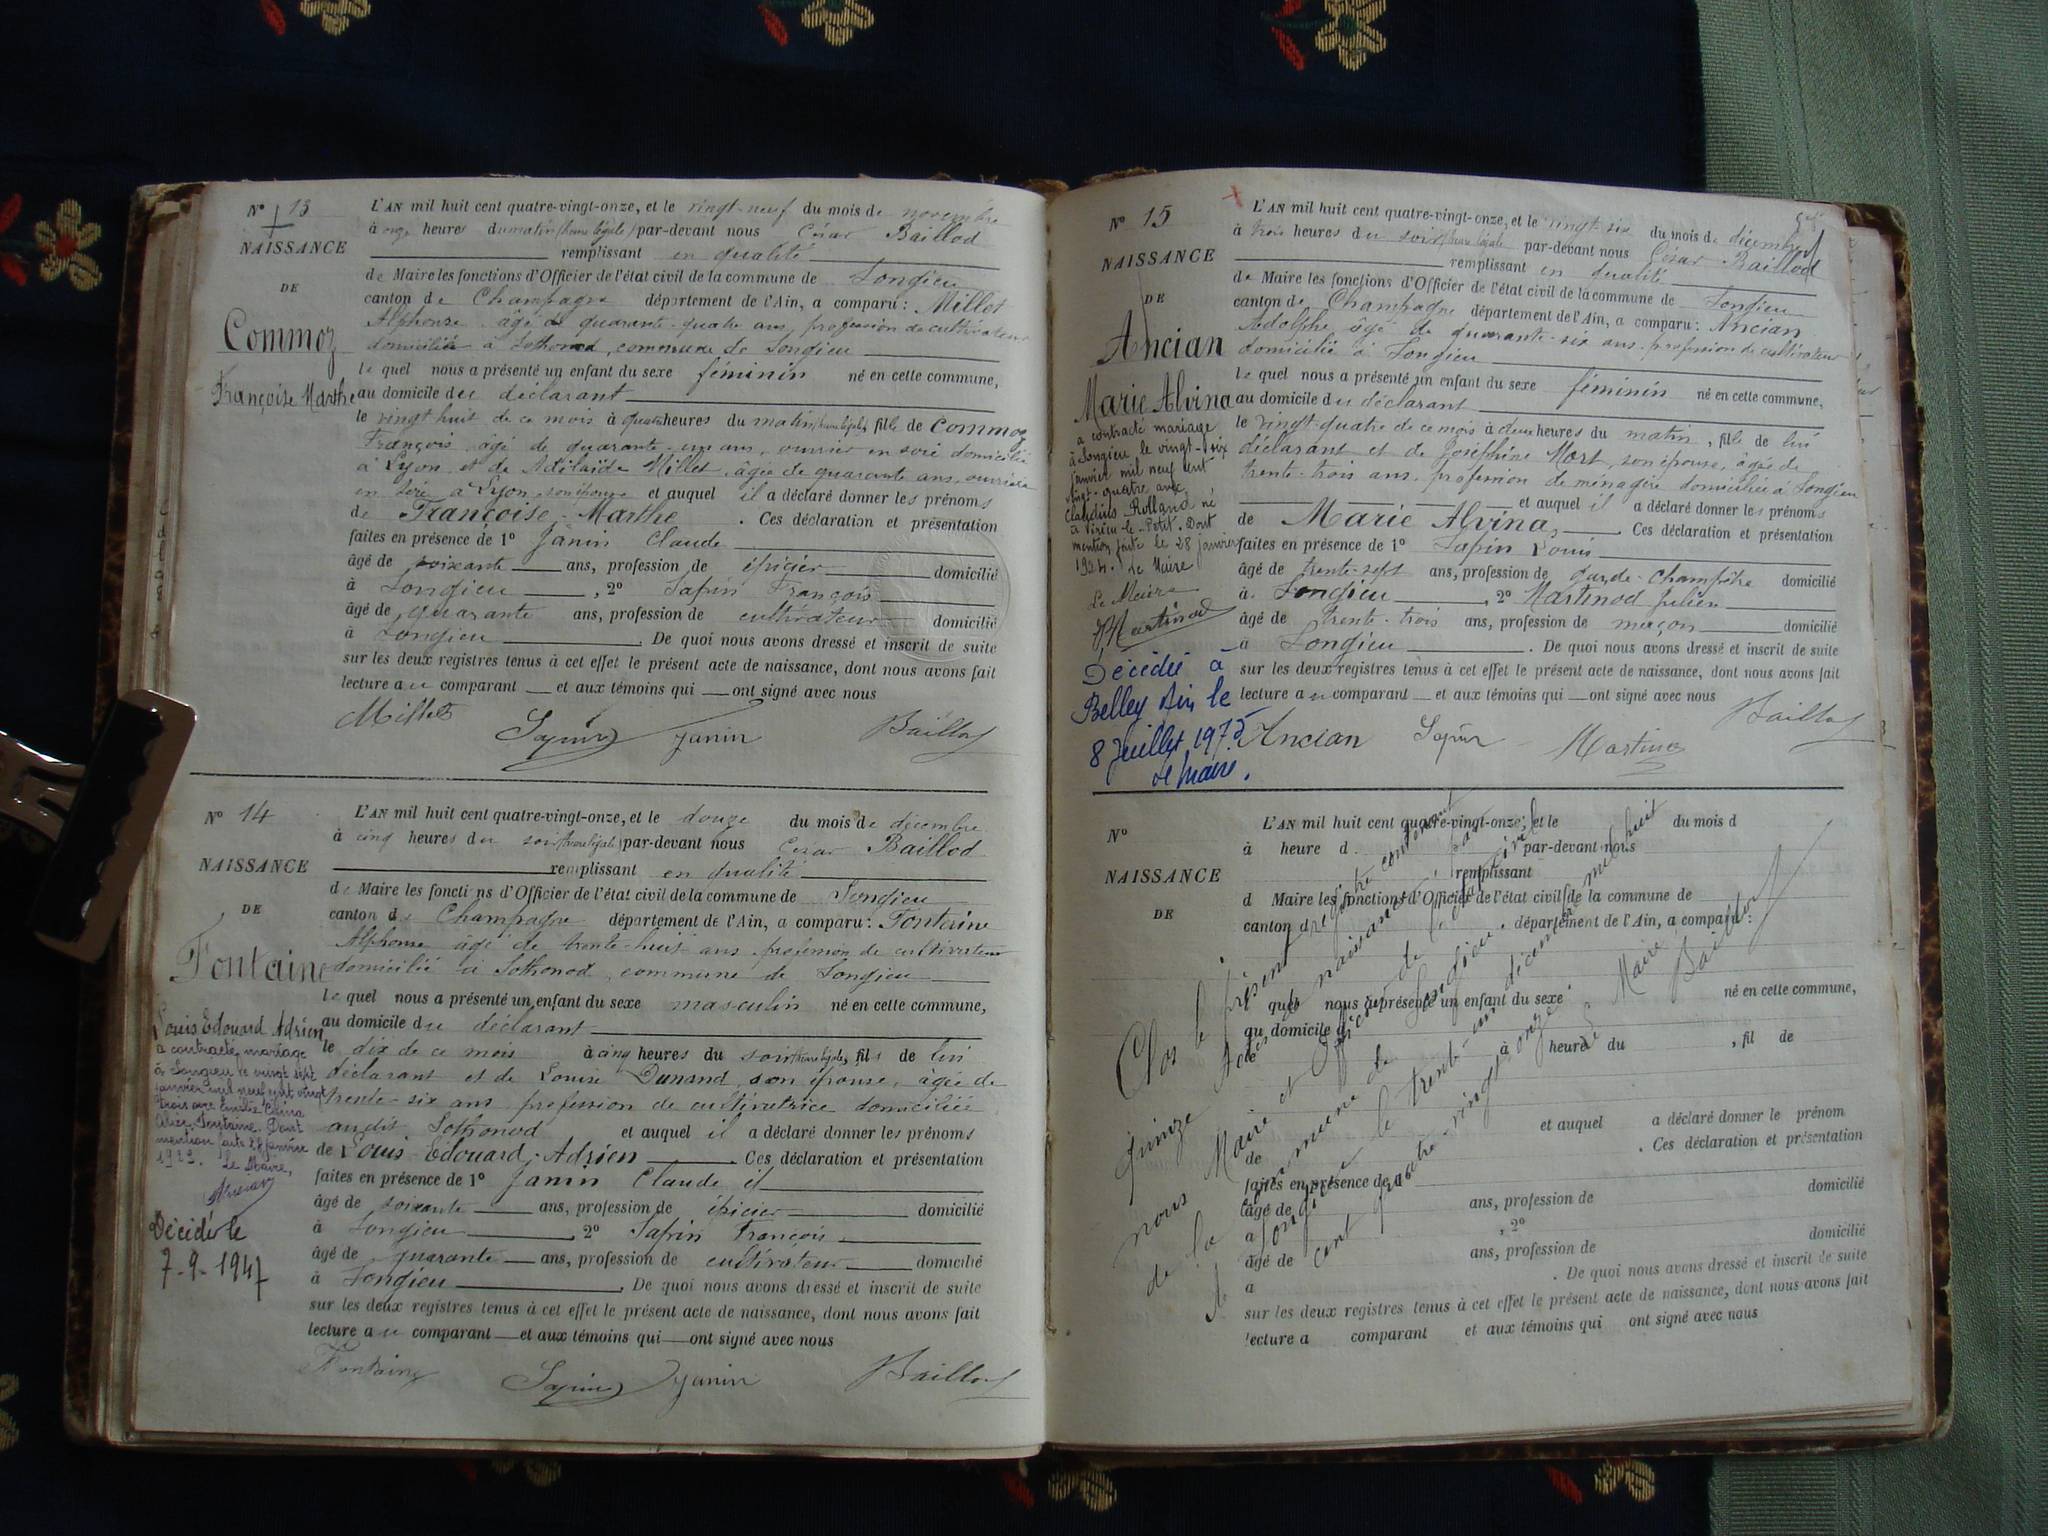 N° 13
NAISSANCE
DE
Commoz
Françoise Marthe
L'AN mil huit cent quatre-vingt-onze, et le vingt-neuf du mois de novembre
à onze heures du matin (heure légale) par-devant nous César Baillod
remplissant en qualité
de Maire les fonctions d'Officier de l'état civil de la commune de Songieu
canton de Champagne département de l'Ain, a comparu : Millet
Alphonse âgé de quarante-quatre ans, profession de cultivateur
domicilié à Sothonod, commune de Songieu
le quel nous a présenté un enfant du sexe féminin né en cette commune,
au domicile du déclarant
le vingt huit de ce mois à quatre heures du matin (heure légale), fille de Commoz
François âgé de quarante-un ans, ouvrier en soie domicilié
à Lyon et de Adélaïde Millet, âgée de quarante ans, ouvrière
en soie à Lyon, son épouse et auquel il a déclaré donner les prénoms
de Françoise-Marthe. Ces déclaration et présentation
faites en présence de 1° Janin Claude
âgé de soixante ans, profession de épicier domicilié
à Songieu, 2° Sapin François
âgé de quarante ans, profession de cultivateur domicilié
à Songieu. De quoi nous avons dressé et inscrit de suite
sur les deux registres tenus à cet effet le présent acte de naissance, dont nous avons fait
lecture au comparant et aux témoins qui ont signé avec nous
Millet Sapin Janin Baillod
N° 14
NAISSANCE
DE
Fontaine
Louis Edouard Adrien
a contracté mariage
à Songieu le vingt sept
janvier mil neuf cent vingt
trois avec Emilie Célina
Fontaine. Dont
mention faite le janvier
Le Maire,
Décédé le
7-9-1947
L'AN mil huit cent quatre-vingt-onze, et le douze du mois de décembre
à cinq heures du soir (heure légale) par-devant nous César Baillod
remplissant en qualité
de Maire les fonctions d'Officier de l'état civil de la commune de Songieu
canton de Champagne département de l'Ain, a comparu : Fontaine
Alphonse âgé de trente-huit ans profession de cultivateur
domicilié à Sothonod, commune de Songieu
le quel nous a présenté un enfant du sexe masculin né en cette commune,
au domicile du déclarant
le dix de ce mois à cinq heures du soir (heure légale), fils de lui
déclarant et de Louise Dunand, son épouse, âgée de
trente-six ans profession de cultivatrice domiciliée
audit Sothonod et auquel il a déclaré donner les prénoms
de Louis-Edouard-Adrien. Ces déclaration et présentation
faites en présence de 1° Janin Claude il
âgé de soixante ans, profession de épicier domicilié
à Songieu 2° Sapin François
âgé de quarante ans, profession de cultivateur domicilié
à Songieu. De quoi nous avons dressé et inscrit de suite
sur les deux registres tenus à cet effet le présent acte de naissance, dont nous avons fait
lecture au comparant et aux témoins qui ont signé avec nous
Fontaine Sapin Janin Baillod
N° 15
NAISSANCE
DE
Ancian
Marie Alvina
a contracté mariage
à Songieu le vingt-six
janvier mil neuf cent
vingt-quatre avec
Claudius Rolland né
à Virieu-le-Petit. Dont
mention faite le 28 janvier
1924. Le Maire
Le Maire
Martinod
Décédée à
Belley Ain le
8 Juillet 1975
Le Maire.
L'AN mil huit cent quatre-vingt-onze, et le vingt-six du mois de décembre
à trois heures du soir (heure légale) par-devant nous César Baillod
remplissant en qualité
de Maire les fonctions d'Officier de l'état civil de la commune de Songieu
canton de Champagne département de l'Ain, a comparu : Ancian
Adolphe âgé de quarante-six ans, profession de cultivateur
domicilié à Songieu
le quel nous a présenté un enfant du sexe féminin né en cette commune,
au domicile du déclarant
le vingt-quatre de ce mois à deux heures du matin, fille de lui
déclarant et de Joséphine Mort, son épouse, âgée de
trente-trois ans, profession de ménagère domiciliée à Songieu
et auquel il a déclaré donner les prénoms
de Marie Alvina. Ces déclaration et présentation
faites en présence de 1° Sapin Louis
âgé de trente-sept ans, profession de garde-champêtre domicilié
à Songieu, 2° Martinod Julien
âgé de trente-trois ans, profession de maçon domicilié
à Songieu. De quoi nous avons dressé et inscrit de suite
sur les deux registres tenus à cet effet le présent acte de naissance, dont nous avons fait
lecture au comparant et aux témoins qui ont signé avec nous
Baillod
Ancian Sapin Martinod
N°
NAISSANCE
DE
L'AN mil huit cent quatre-vingt-onze, et le du mois d
à heure d par-devant nous
remplissant
d Maire les fonctions d'Officier de l'état civil de la commune de
canton d département de l'Ain, a comparu :
quel nous a présenté un enfant du sexe né en cette commune,
au domicile d
le à heure du , fil de
et auquel a déclaré donner le prénom
de . Ces déclaration et présentation
faites en présence de 1°
âgé de ans, profession de domicilié
à , 2°
âgé de ans, profession de domicilié
à . De quoi nous avons dressé et inscrit de suite
sur les deux registres tenus à cet effet le présent acte de naissance, dont nous avons fait
lecture a comparant et aux témoins qui ont signé avec nous
Clos le présent registre contenant
quinze actes de naissance par
nous Maire et Officier de l'état civil
de la commune de Songieu.
à Songieu le trente-un décembre mil huit
cent quatre-vingt-onze
Le Maire
Baillod